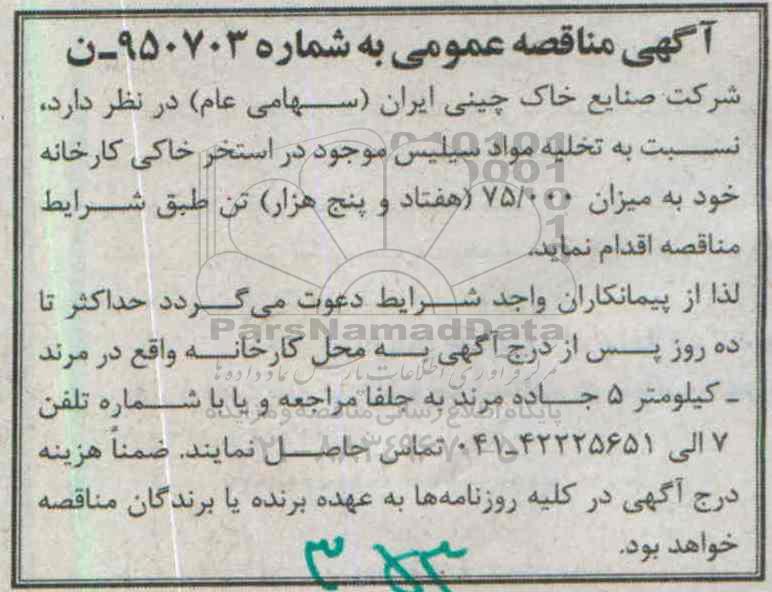 آگهی مناقصه عمومی به شماره ۹۵۰۷۰۳-ن
شرکت صنایع خاک چینی ایران (سهامی عام) در نظر دارد،
نسبت به تخلیه مواد سیلیس موجود در استخر خاکی کارخانه
خود به میزان ۷۵/۰۰۰ (هفتاد و پنج هزار) تن طبق شرایط
مناقصه اقدام نماید.
لذا از پیمانکاران واجد شرایط دعوت می‌گردد حداکثر تا
ده روز پس از درج آگهی به محل کارخانه واقع در مرند
ـ کیلومتر ۵ جاده مرند به جلفا مراجعه و یا با شماره تلفن
۷ الی ۴۲۲۲۵۶۵۱-۰۴۱ تماس حاصل نمایند. ضمناً هزینه
درج آگهی در کلیه روزنامه‌ها به عهده برنده یا برندگان مناقصه
خواهد بود.
ParsNamadData
مرکز فرآوری اطلاعات پارس نماد داده‌ها
پایگاه اطلاع رسانی مناقصه و مزایده